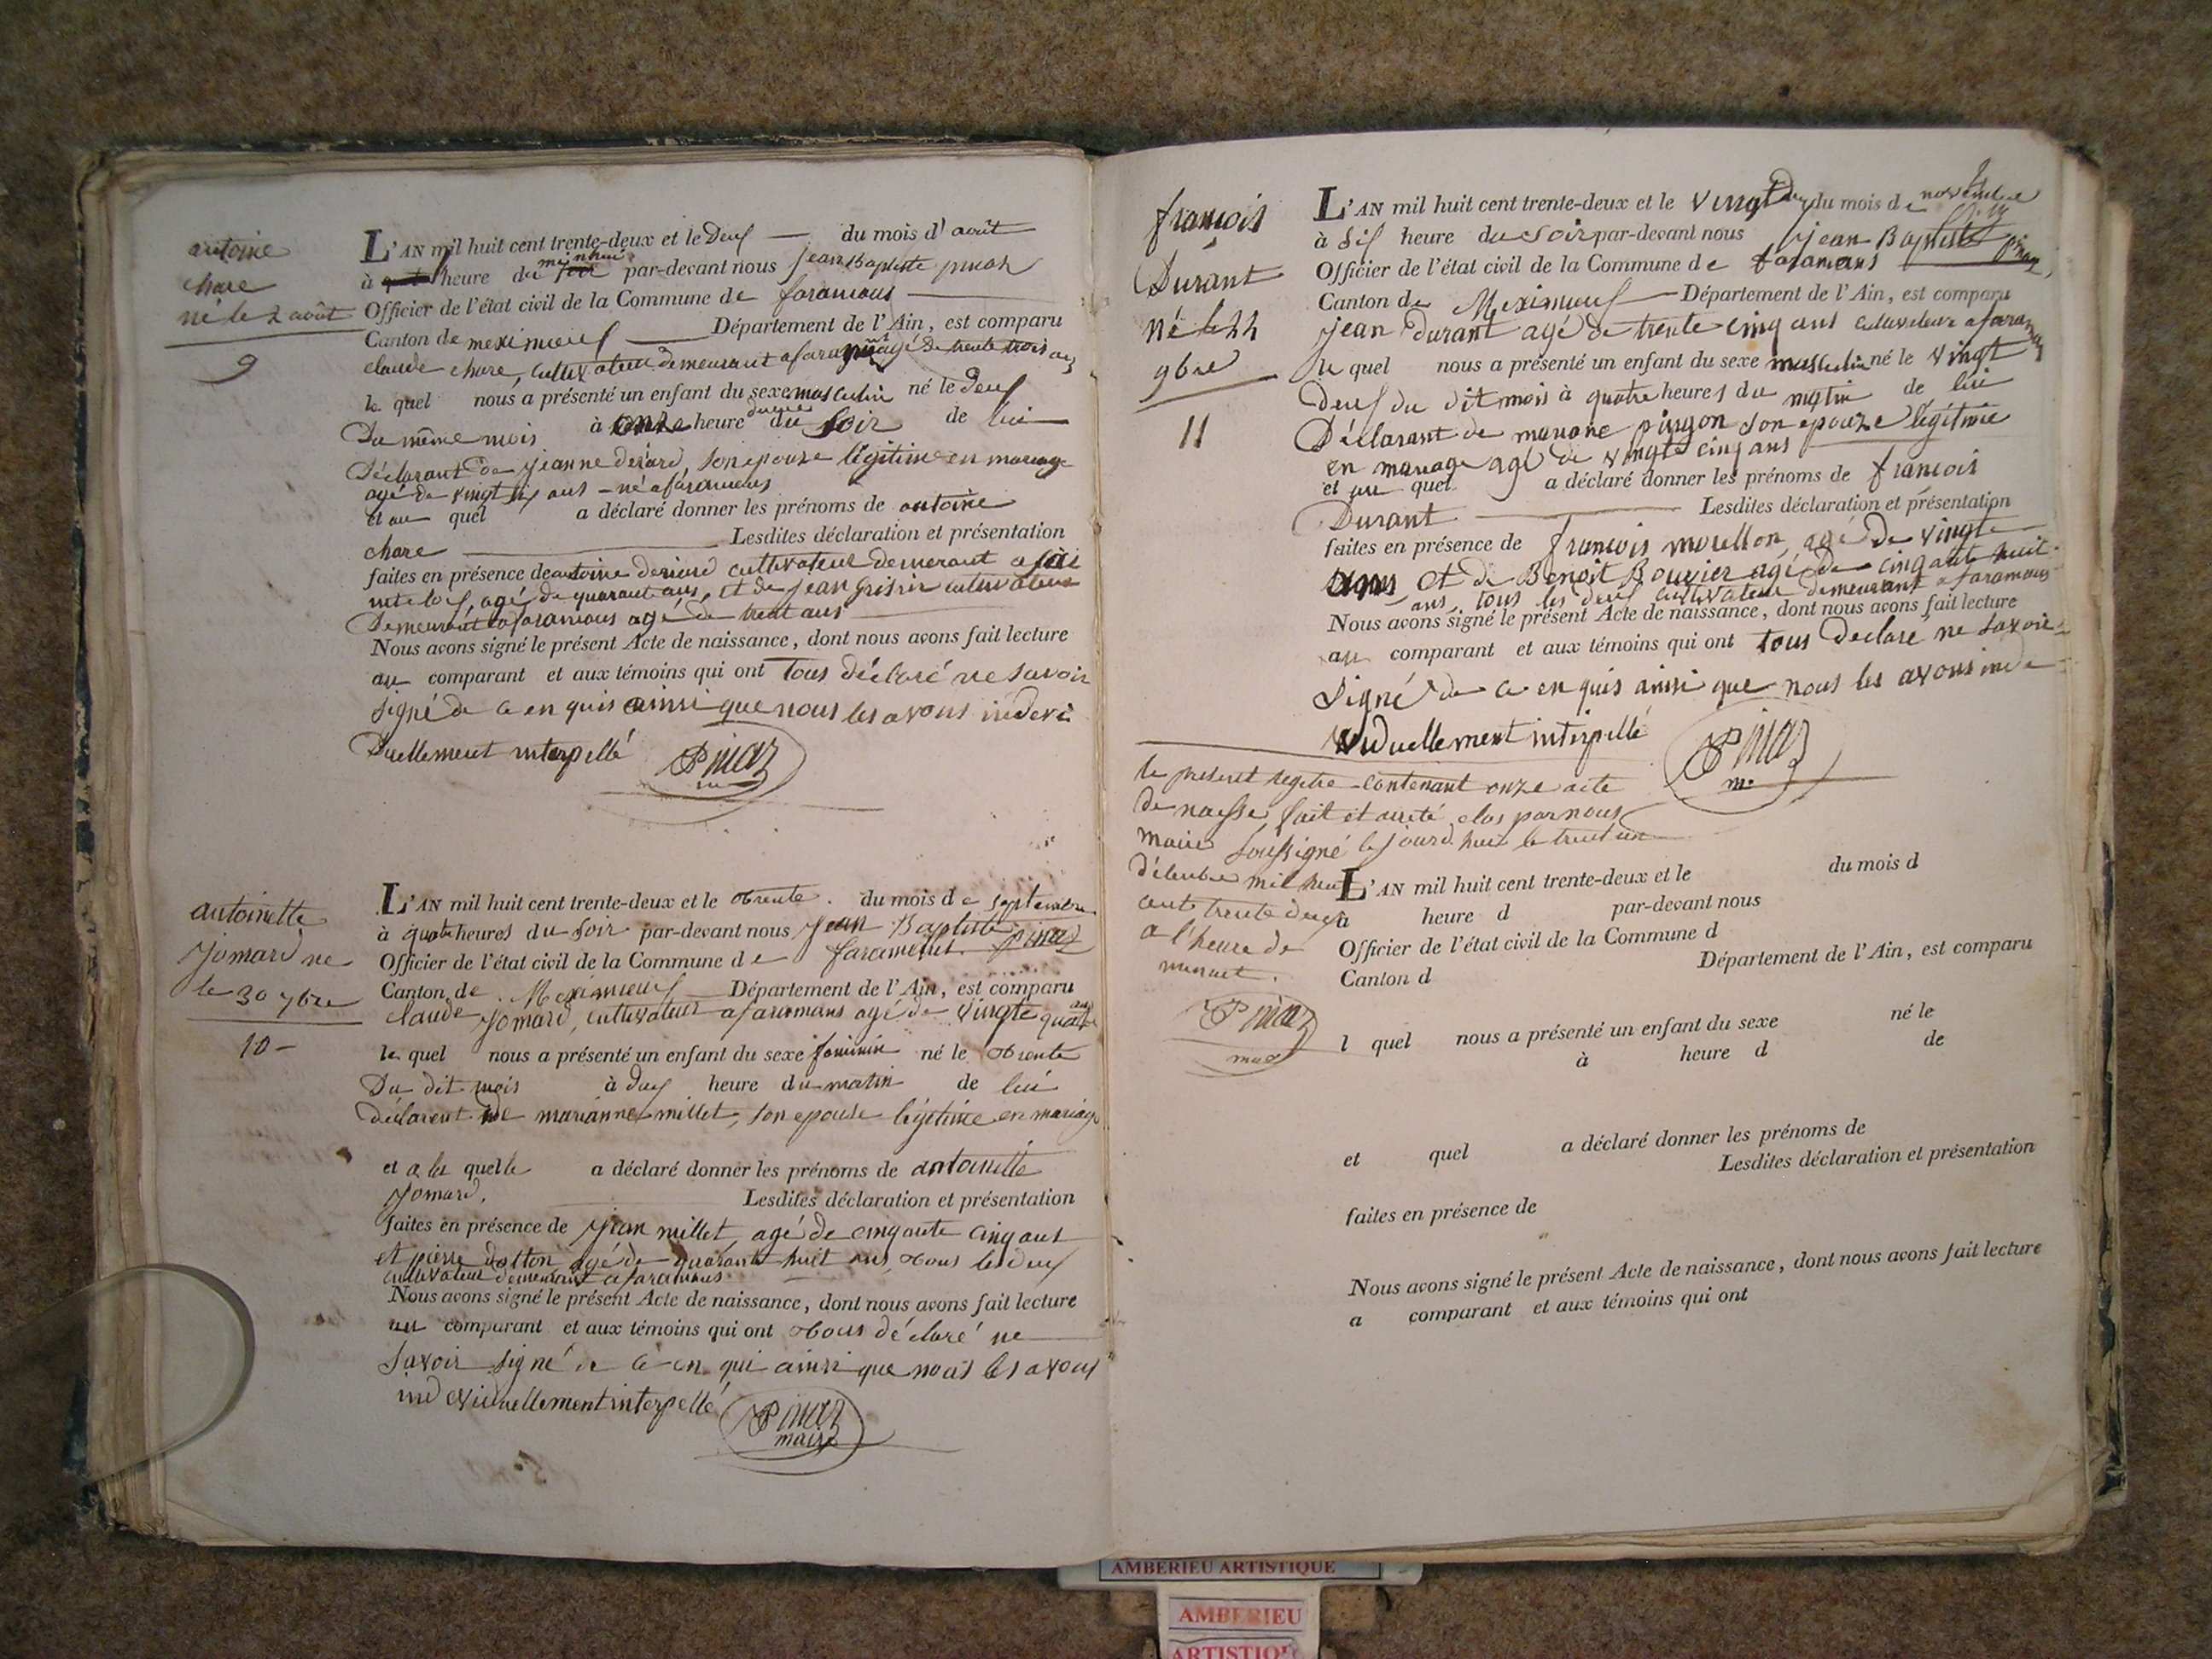 antoine
chare
né le 2 août
9
L'AN mil huit cent trente-deux et le Deux du mois d'août
à heure du minhui par-devant nous jean Baptiste pinaz
Officier de l'état civil de la Commune de faramans
Canton de meximieux Département de l'Ain, est comparu
claude chare, cultivateur demeurant a faramans agé de trente trois ans
le quel nous a présenté un enfant du sexe masculin né le Deux
Du même mois à onze heure du soir de lui
Déclarant de jeanne deriard, son epouze légitime en mariage
agé de vingt six ans - né a faramans
et au quel a déclaré donner les prénoms de antoine
chare Lesdites déclaration et présentation
faites en présence de antoine deriard cultivateur demeurant a
agé de quarant ans, et de jean cultivateur
Demeurant a faramans agé de trent ans
Nous avons signé le présent Acte de naissance, dont nous avons fait lecture
au comparant et aux témoins qui ont Tous déclaré ne savoir
signé de ce en quis ainsi que nous les avons indevi
Duellement interpellé Pinaz
antoinette
jomard né
le 30 7bre
10
L'AN mil huit cent trente-deux et le trente du mois de septembre
à quatre heures du soir par-devant nous jean Baptiste Pinaz
Officier de l'état civil de la Commune de faramans
Canton de Meximieux Département de l'Ain, est comparu
claude jomard, cultivateur a faramans agé de vingte quatre ans
le quel nous a présenté un enfant du sexe feminin né le trente
Du dit mois à deux heure du matin de lui
déclarent de marianne millet, son epouse légitime en mariage
et a la quelle a déclaré donner les prénoms de antoinette
jomard. Lesdites déclaration et présentation
faites en présence de jean millet, agé de cinqante cinq ans
et pierre dotton agé de quarante huit ans tous les deux
cultivateur demeurant a faramans
Nous avons signé le présent Acte de naissance, dont nous avons fait lecture
au comparant et aux témoins qui ont tous déclaré ne
savoir signé de ce en qui ainsi que nous les avons
indeviduellement interpellé Pinaz
maire
françois
Durant
né le 22
9bre
11
L'AN mil huit cent trente-deux et le vingt deux du mois de novembre
à six heure du soir par-devant nous jean Baptiste Pinaz
Officier de l'état civil de la Commune de faramans
Canton de Meximieux Département de l'Ain, est comparu
jean durant agé de trente cinq ans cultivateur a faramans
le quel nous a présenté un enfant du sexe masculin né le vingt
Deux du dit mois à quatre heures du matin de lui
Déclarant de mariane pingon son epouze légitime
en mariage agé de vingte cinq ans
et au quel a déclaré donner les prénoms de françois
Durant Lesdites déclaration et présentation
faites en présence de françois morellon, agé de vingte
ans, et de Benoit Bouvier agé de cinqante huit
ans, tous les deux cultivateur demeurant a faramans
Nous avons signé le présent Acte de naissance, dont nous avons fait lecture
au comparant et aux témoins qui ont tous déclaré ne savoir
signé de ce en quis ainsi que nous les avons inde
viduellement interpellé Pinaz
me
le present registre contenant onze acte
de naisse, fait et arreté clos par nous
maire soussigné le jourd. hui le trent un
décembre mil huit
cente trente deux
a l'heure de
minuit.
Pinaz
L'AN mil huit cent trente-deux et le du mois d
à heure d par-devant nous
Officier de l'état civil de la Commune d
Canton d Département de l'Ain, est comparu
l quel nous a présenté un enfant du sexe né le
à heure d de
et quel a déclaré donner les prénoms de
Lesdites déclaration et présentation
faites en présence de
Nous avons signé le présent Acte de naissance, dont nous avons fait lecture
a comparant et aux témoins qui ont
AMBERIEU ARTISTIQUE
AMBERIEU
ARTISTIQUE